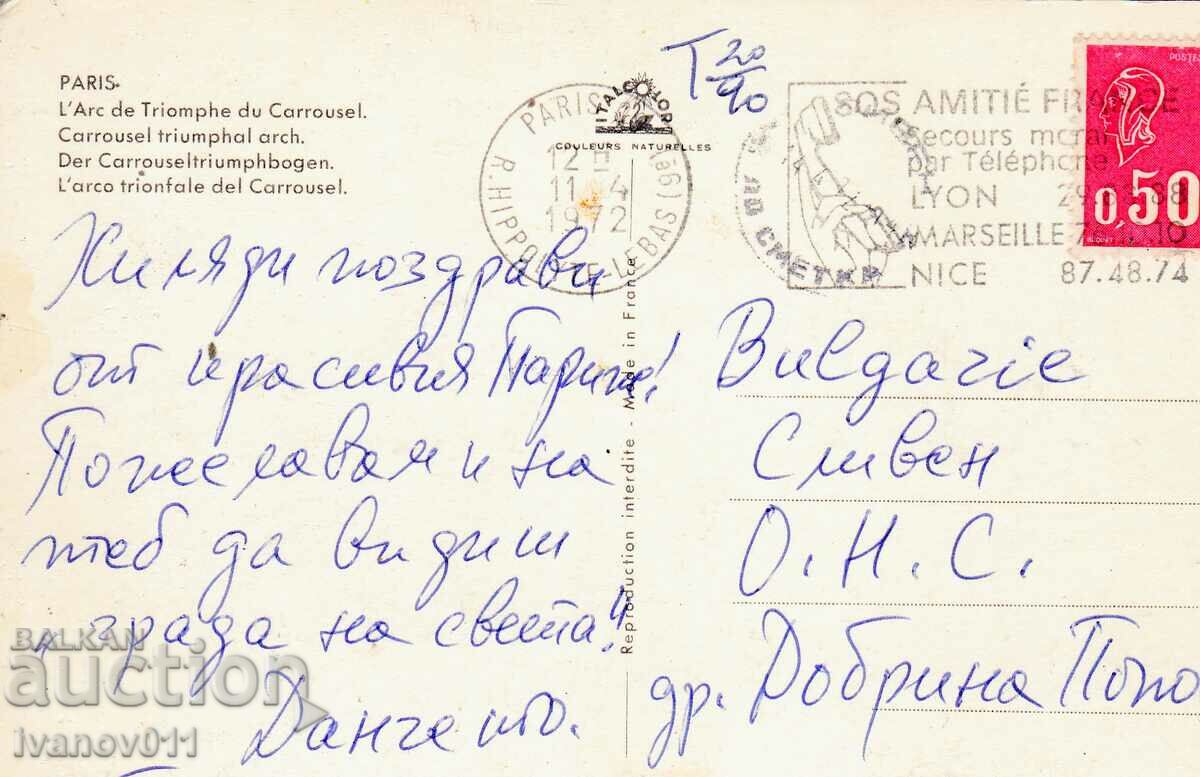 PARIS
L'Arc de Triomphe du Carrousel.
Carrousel triumphal arch.
Der Carrouseltriumphbogen.
L'arco trionfale del Carrousel.
T 20/90
ITALCOLOR
COULEURS NATURELLES
PARIS
12 H
11-4
1972
R. HIPPOLYTE-LEBAS (9e)
SOS AMITIÉ FRANCE
secours moral
par Téléphone
LYON 29.83.88
MARSEILLE 76. 10
NICE 87.48.74
СМЕТКА
POSTES
0,50
Хиляди поздрави
от красивия Париж!
Пожелавам и на
теб да видиш
"града на света"!
Данчето.
Reproduction interdite - Made in France
Bulgarie
Сливен
О.Н.С.
др. Добрина Попо
BALKAN
auction
ivanov011